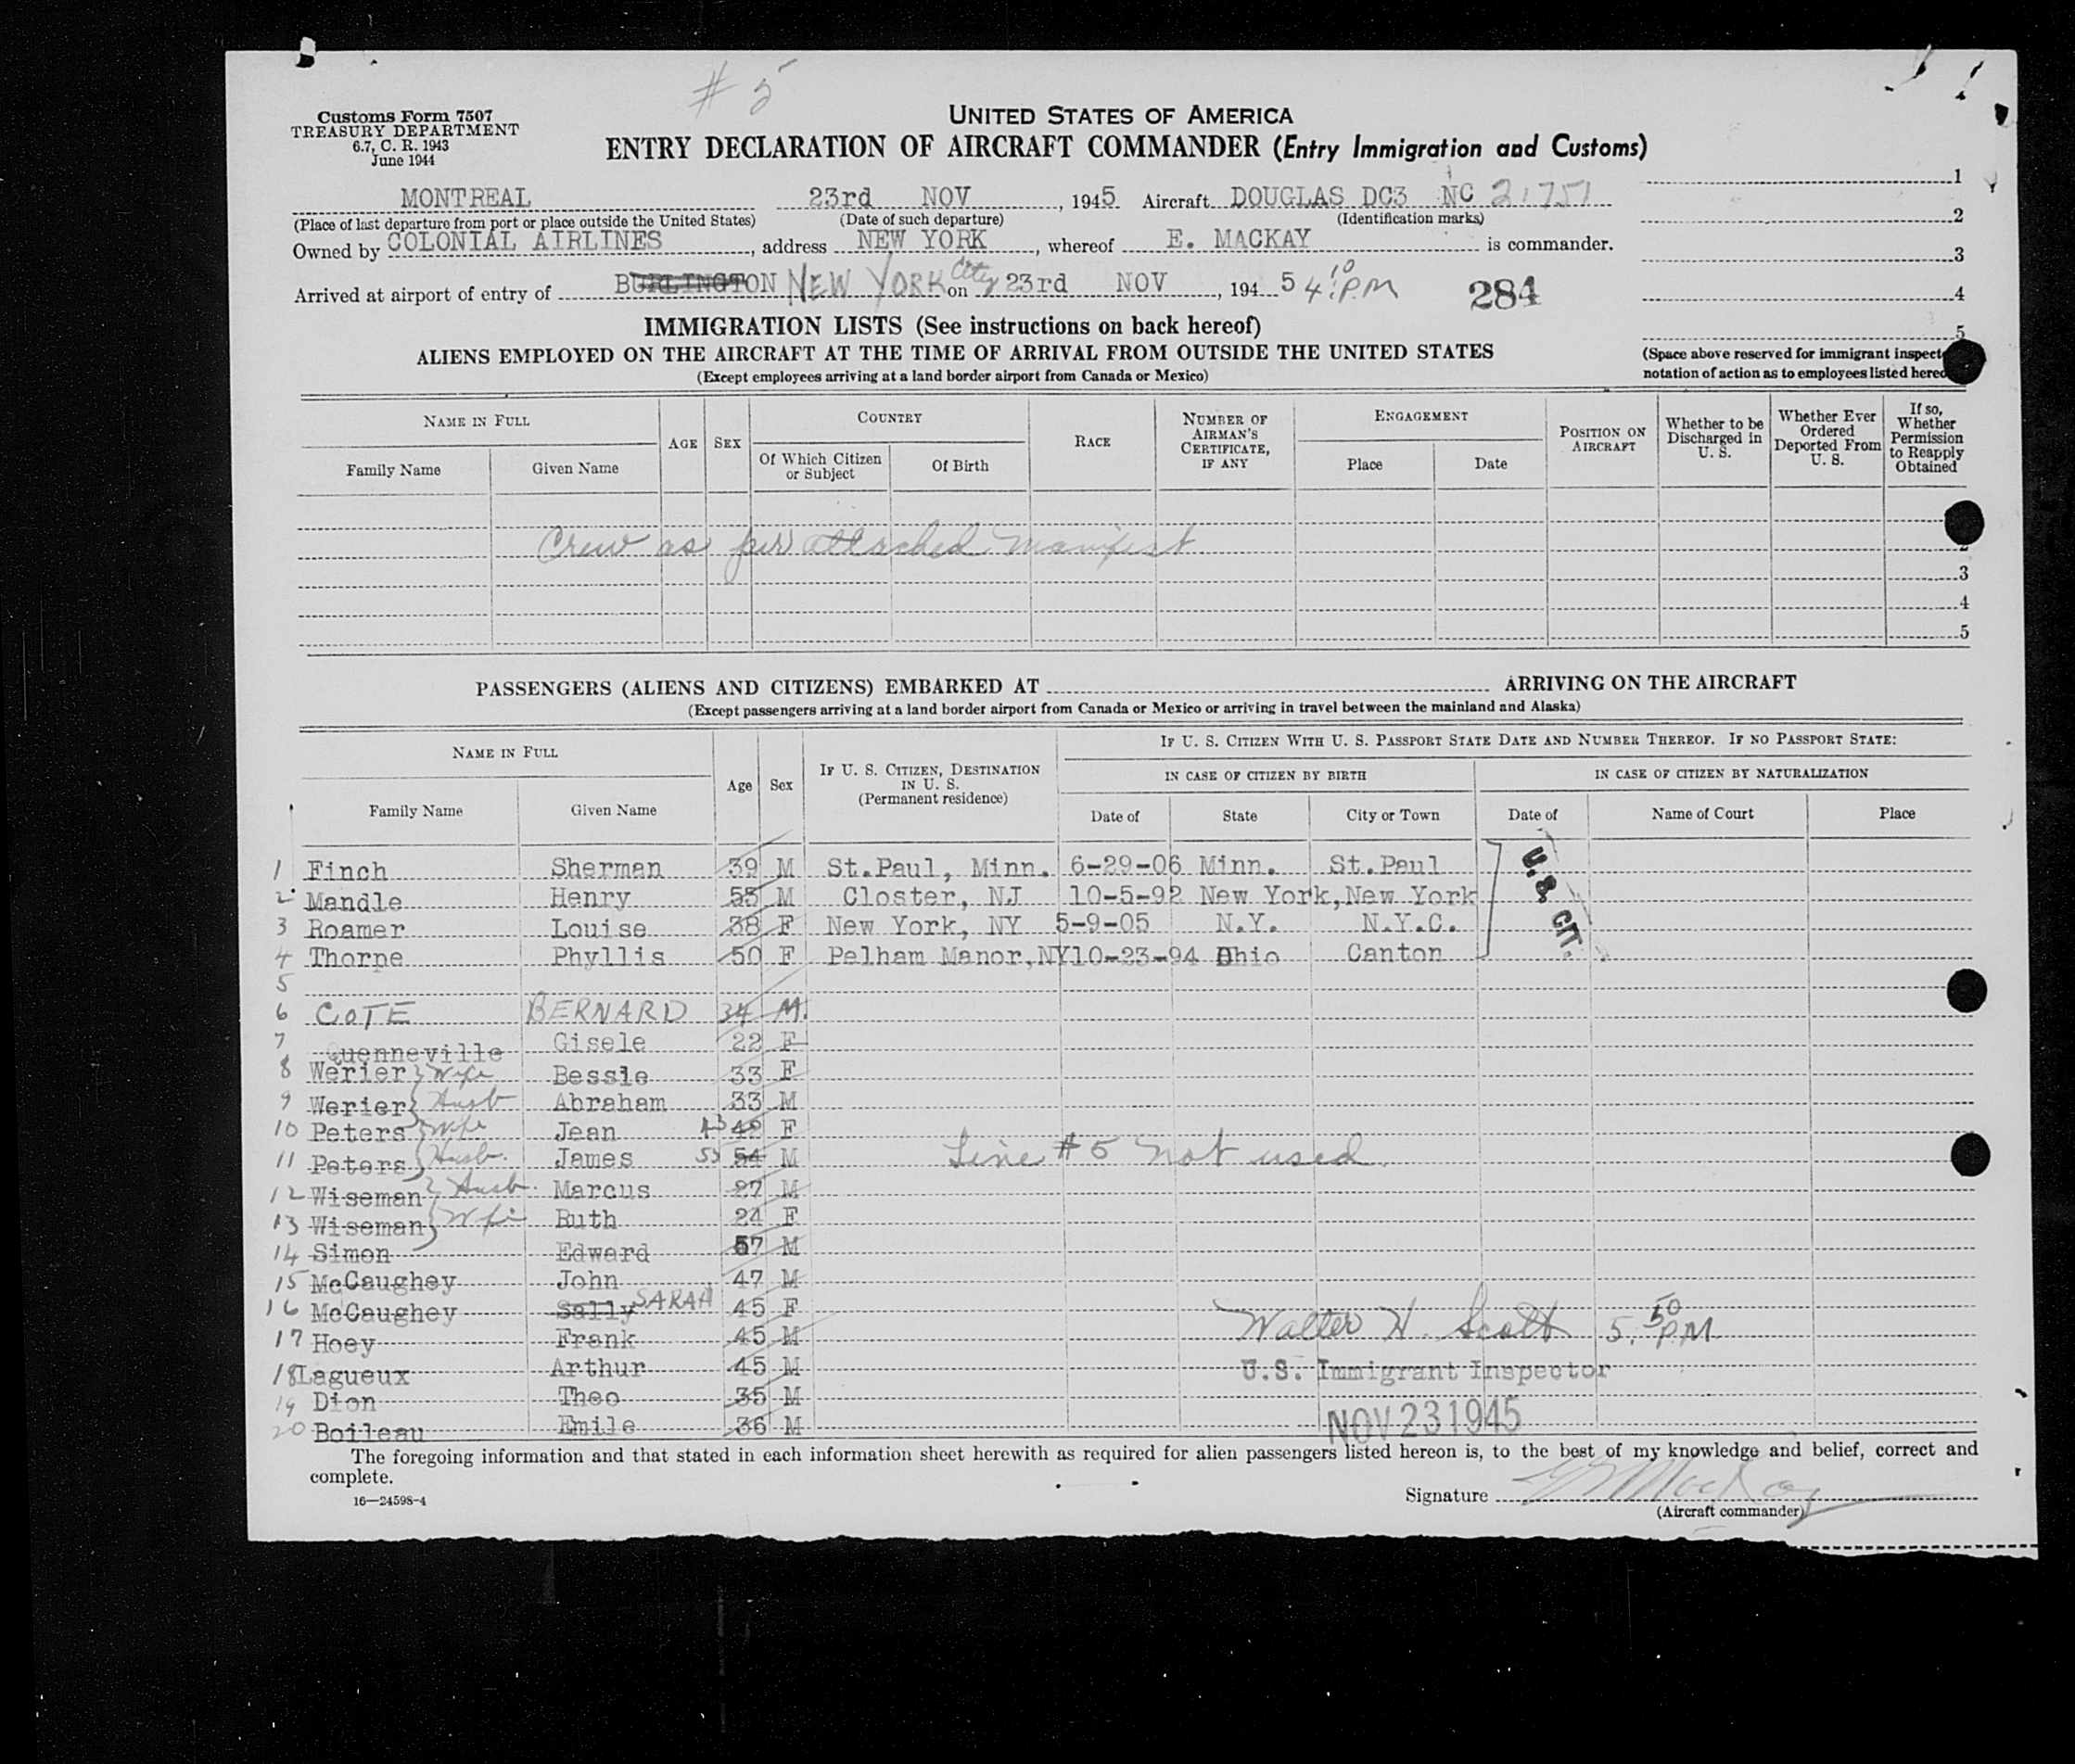 # 5
Customs Form 7507
TREASURY DEPARTMENT
6.7, C. R. 1943
June 1944
UNITED STATES OF AMERICA
ENTRY DECLARATION OF AIRCRAFT COMMANDER (Entry Immigration and Customs)
MONTREAL 23rd NOV, 1945 Aircraft DOUGLAS DC3 NC 21751 1
(Place of last departure from port or place outside the United States) (Date of such departure) (Identification marks) 2
Owned by COLONIAL AIRLINES, address NEW YORK, whereof E. MACKAY is commander. 3
Arrived at airport of entry of BURLINGTON NEW YORK City on 23rd NOV, 1945 4:10 P.M 284 4
IMMIGRATION LISTS (See instructions on back hereof) 5
ALIENS EMPLOYED ON THE AIRCRAFT AT THE TIME OF ARRIVAL FROM OUTSIDE THE UNITED STATES
(Except employees arriving at a land border airport from Canada or Mexico)
(Space above reserved for immigrant inspect
notation of action as to employees listed hereo
NAME IN FULL
Family Name Given Name
AGE SEX
COUNTRY
Of Which Citizen or Subject Of Birth
RACE
NUMBER OF AIRMAN'S CERTIFICATE, IF ANY
ENGAGEMENT
Place Date
POSITION ON AIRCRAFT
Whether to be Discharged in U. S.
Whether Ever Ordered Deported From U. S.
If so, Whether Permission to Reapply Obtained
Crew as per attached manifest
3
4
5
PASSENGERS (ALIENS AND CITIZENS) EMBARKED AT ARRIVING ON THE AIRCRAFT
(Except passengers arriving at a land border airport from Canada or Mexico or arriving in travel between the mainland and Alaska)
NAME IN FULL
Family Name Given Name
Age Sex
IF U. S. CITIZEN, DESTINATION IN U. S. (Permanent residence)
IF U. S. CITIZEN WITH U. S. PASSPORT STATE DATE AND NUMBER THEREOF. IF NO PASSPORT STATE:
IN CASE OF CITIZEN BY BIRTH IN CASE OF CITIZEN BY NATURALIZATION
Date of State City or Town Date of Name of Court Place
1 Finch Sherman 39 M St.Paul, Minn. 6-29-06 Minn. St.Paul
2 Mandle Henry 53 M Closter, NJ 10-5-92 New York, New York
3 Roamer Louise 38 F New York, NY 5-9-05 N.Y. N.Y.C.
4 Thorne Phyllis 50 F Pelham Manor,NY 10-23-94 Ohio Canton
U.S. CIT.
5
6 COTE BERNARD 34 M.
7 Quenneville Gisele 22 F
8 Werier } Wife Bessie 33 F
9 Werier } Husb Abraham 33 M
10 Peters } Wife Jean 43 42 F
11 Peters } Husb. James 53 54 M Line # 5 not used.
12 Wiseman } Husb. Marcus 27 M
13 Wiseman } Wife Ruth 24 F
14 Simon Edward 57 M
15 McCaughey John 47 M
16 McCaughey Sally SARAH 45 F
17 Hoey Frank 45 M Walter H. Scott 5.50 P.M
18 Lagueux Arthur 45 M U.S. Immigrant Inspector
19 Dion Theo 35 M
20 Boileau Emile 36 M NOV 23 1945
The foregoing information and that stated in each information sheet herewith as required for alien passengers listed hereon is, to the best of my knowledge and belief, correct and
complete.
16—24598-4
Signature E MacKay
(Aircraft commander)